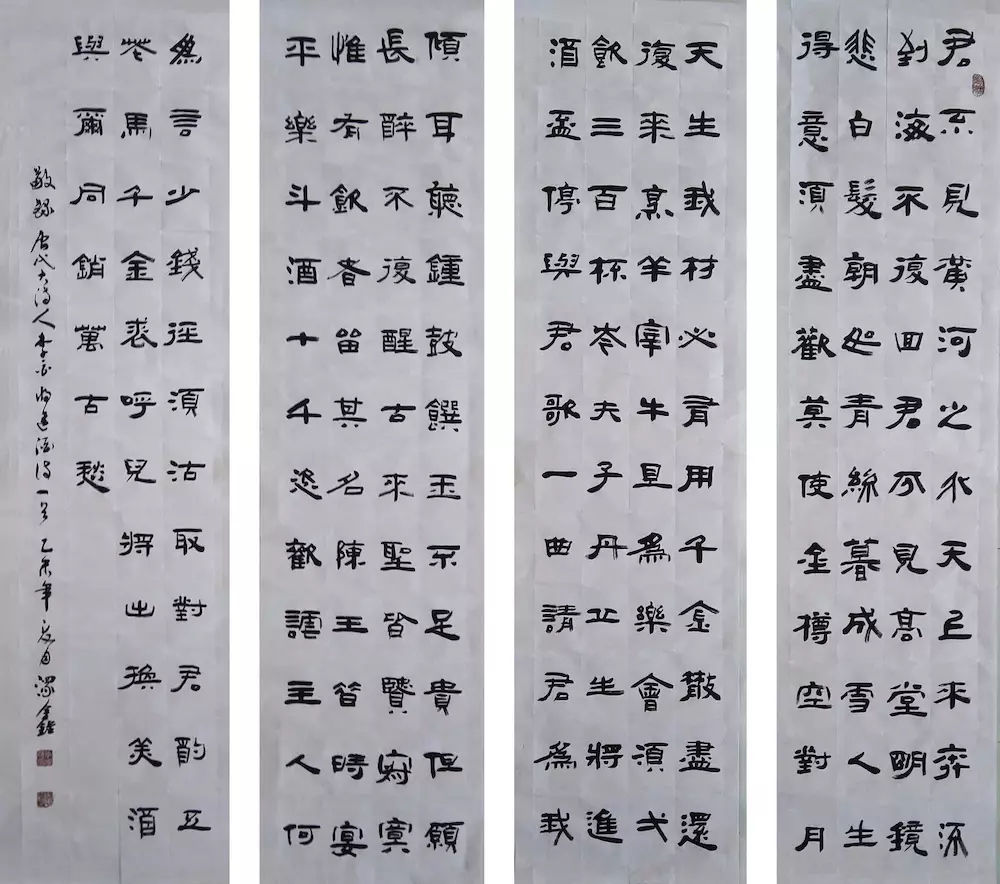 君不見黃河之水天上來奔流
到海不復回君不見高堂明鏡
悲白髮朝如青絲暮成雪人生
得意須盡歡莫使金樽空對月
天生我材必有用千金散盡還
復來烹羊宰牛且為樂會須弌
飲三百杯岑夫子丹丘生將進
酒盃停與君歌一曲請君為我
傾耳聽鍾鼓饌玉不足貴但願
長醉不復醒古來聖皆賢寂寞
惟有飲者留其名陳王昔時宴
平樂斗酒十千恣歡謔主人何
為言少錢徑須沽取對君酌五
花馬千金裘呼兒將出換美酒
與爾同銷萬古愁
敬錄唐代大詩人李白將進酒詩一首乙未年夏月